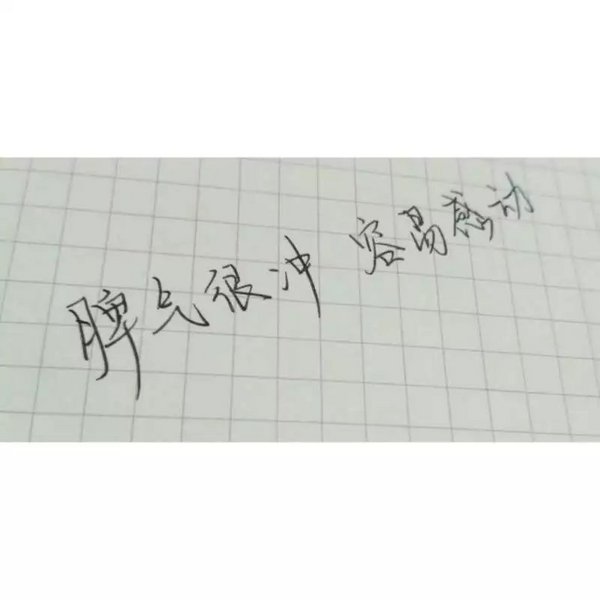 脾气很冲 容易感动